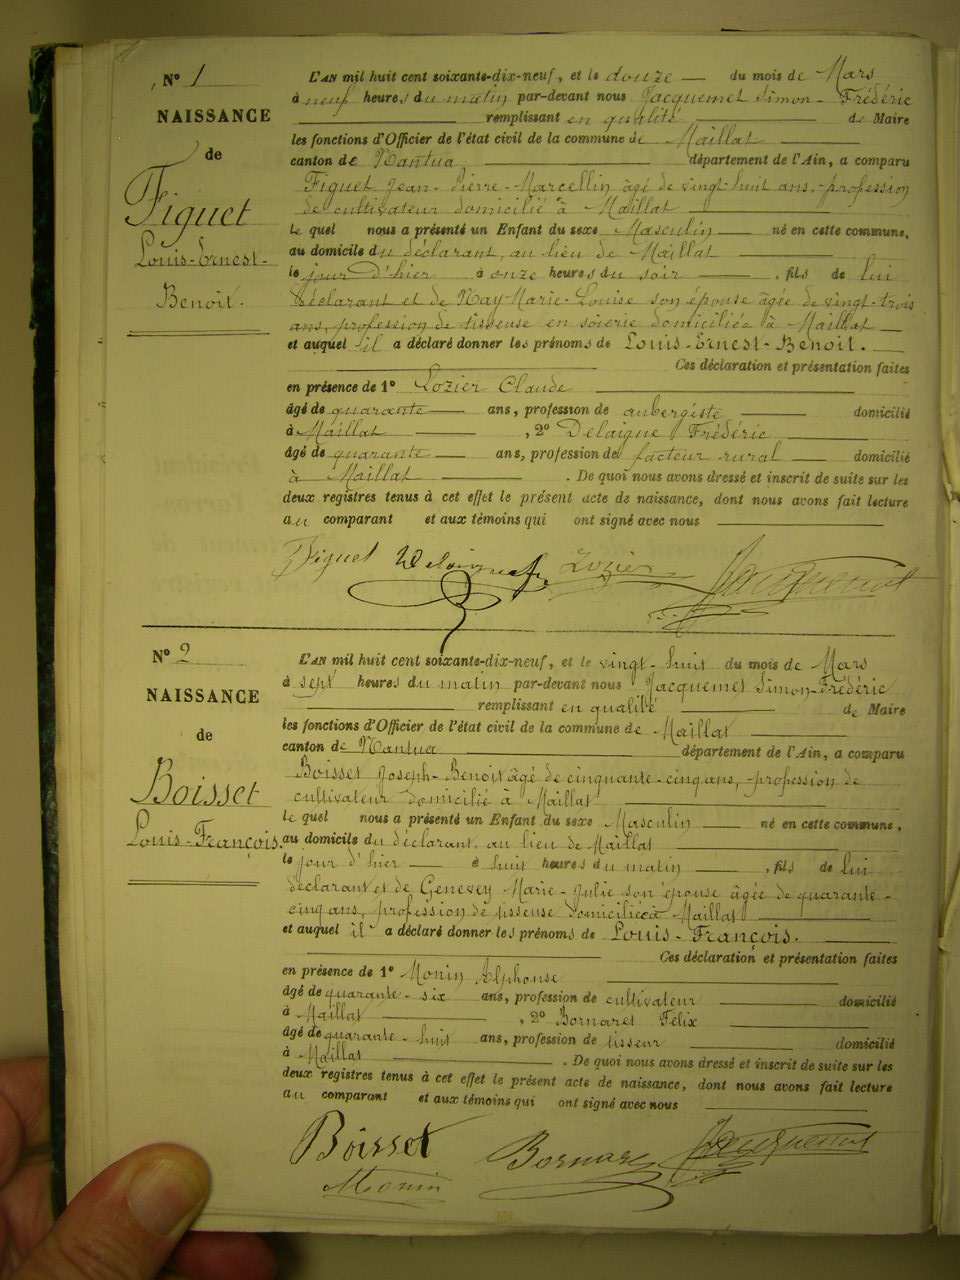 N° 1
NAISSANCE
de
Figuet
Louis-Ernest-
Benoit.
L'AN mil huit cent soixante-dix-neuf, et le douze du mois de Mars
à neuf heures du matin par-devant nous Jacquemet Simon-Frédéric
remplissant en qualité de Maire
les fonctions d'Officier de l'état civil de la commune de Maillat
canton de Nantua, département de l'Ain, a comparu
Figuet Jean-Pierre-Marcellin âgé de vingt-huit ans, profession
de cultivateur domicilié à Maillat
Le quel nous a présenté un Enfant du sexe Masculin né en cette commune,
au domicile du déclarant, au lieu de Maillat
le jour d'hier à onze heures du soir, fils de lui
déclarant et de Nay Marie-Louise son épouse âgée de vingt-trois
ans, profession de tisseuse en soierie domiciliée à Maillat
et auquel il a déclaré donner les prénoms de Louis-Ernest-Benoit.
Ces déclaration et présentation faites
en présence de 1° Lozier Claude
âgé de quarante ans, profession de aubergiste domicilié
à Maillat, 2° Delaigue Frédéric
âgé de quarante ans, profession de facteur rural domicilié
à Maillat. De quoi nous avons dressé et inscrit de suite sur les
deux registres tenus à cet effet le présent acte de naissance, dont nous avons fait lecture
au comparant et aux témoins qui ont signé avec nous
Figuet Delaigue Lozier Jacquemet
N° 2
NAISSANCE
de
Boisset
Louis-François.
L'AN mil huit cent soixante-dix-neuf, et le vingt-huit du mois de Mars
à sept heures du matin par-devant nous Jacquemet Simon-Frédéric
remplissant en qualité de Maire
les fonctions d'Officier de l'état civil de la commune de Maillat
canton de Nantua département de l'Ain, a comparu
Boisset Joseph-Benoit âgé de cinquante-cinq ans, profession de
cultivateur domicilié à Maillat
Le quel nous a présenté un Enfant du sexe Masculin né en cette commune,
au domicile du déclarant, au lieu de Maillat
le jour d'hier à huit heures du matin, fils de lui
déclarant et de Genevey Marie-Julie son épouse âgée de quarante-
cinq ans, profession de tisseuse domiciliée à Maillat
et auquel il a déclaré donner les prénoms de Louis-François.
Ces déclaration et présentation faites
en présence de 1° Monin Alphonse
âgé de quarante-six ans, profession de cultivateur domicilié
à Maillat, 2° Bornarel Félix
âgé de quarante-huit ans, profession de tisseur domicilié
à Maillat. De quoi nous avons dressé et inscrit de suite sur les
deux registres tenus à cet effet le présent acte de naissance, dont nous avons fait lecture
au comparant et aux témoins qui ont signé avec nous
Boisset Bornarel Jacquemet
Monin